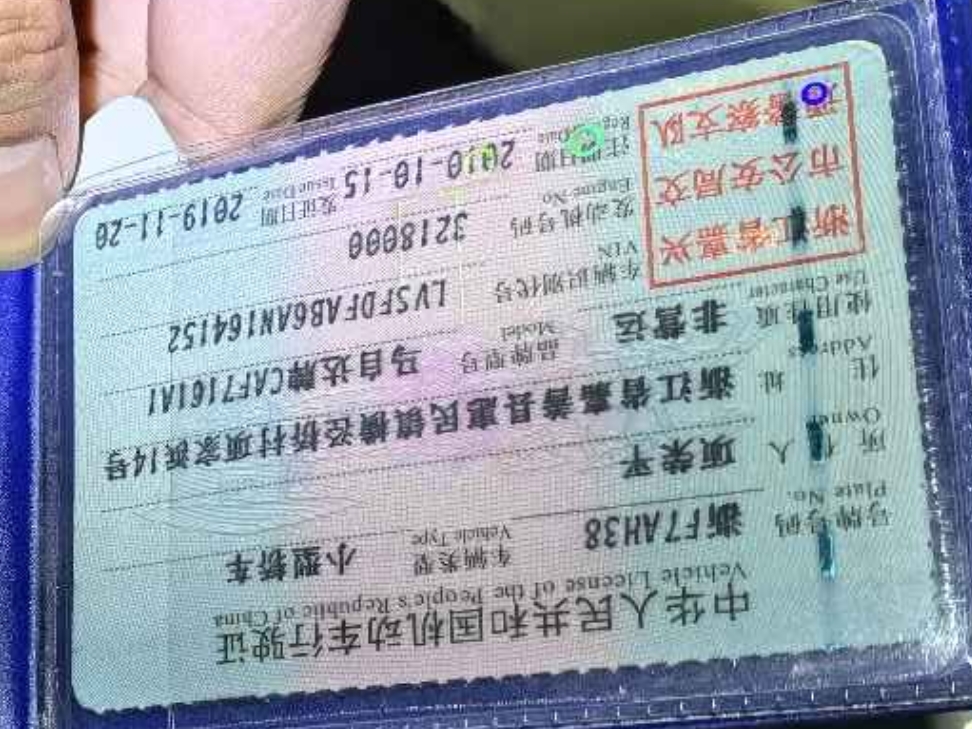 中华人民共和国机动车行驶证
Vehicle License of the People's Republic of China
号牌号码 浙F7AH38 车辆类型 小型轿车
Plate No. Vehicle Type
所有人 项荣平
Owner
住址 浙江省嘉善县惠民镇横泾桥村项家浜14号
Address
使用性质 非营运 品牌型号 马自达牌CAF7161A1
Use Character Model
浙江省嘉兴
市公安局交
警察支队
车辆识别代号 LVSFDFAB6AN164152
VIN
发动机号码 3218000
Engine No.
注册日期 2010-10-15 发证日期 2019-11-20
Reg Date Issue Date